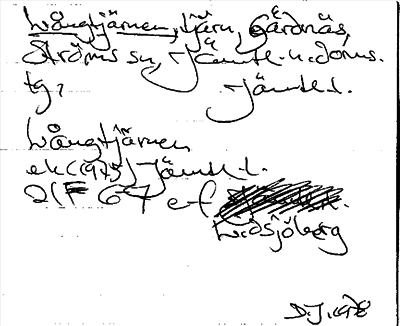 Långtjärnen, tjärn, Gårdnäs,
Ströms sn, Jämtl. n. doms.
tg, Jämtl.l.
Långtjärnen
ek (1975) Jämtl.l.
21F 6-7 e-f
Lidsjöberg
D.J. 1978